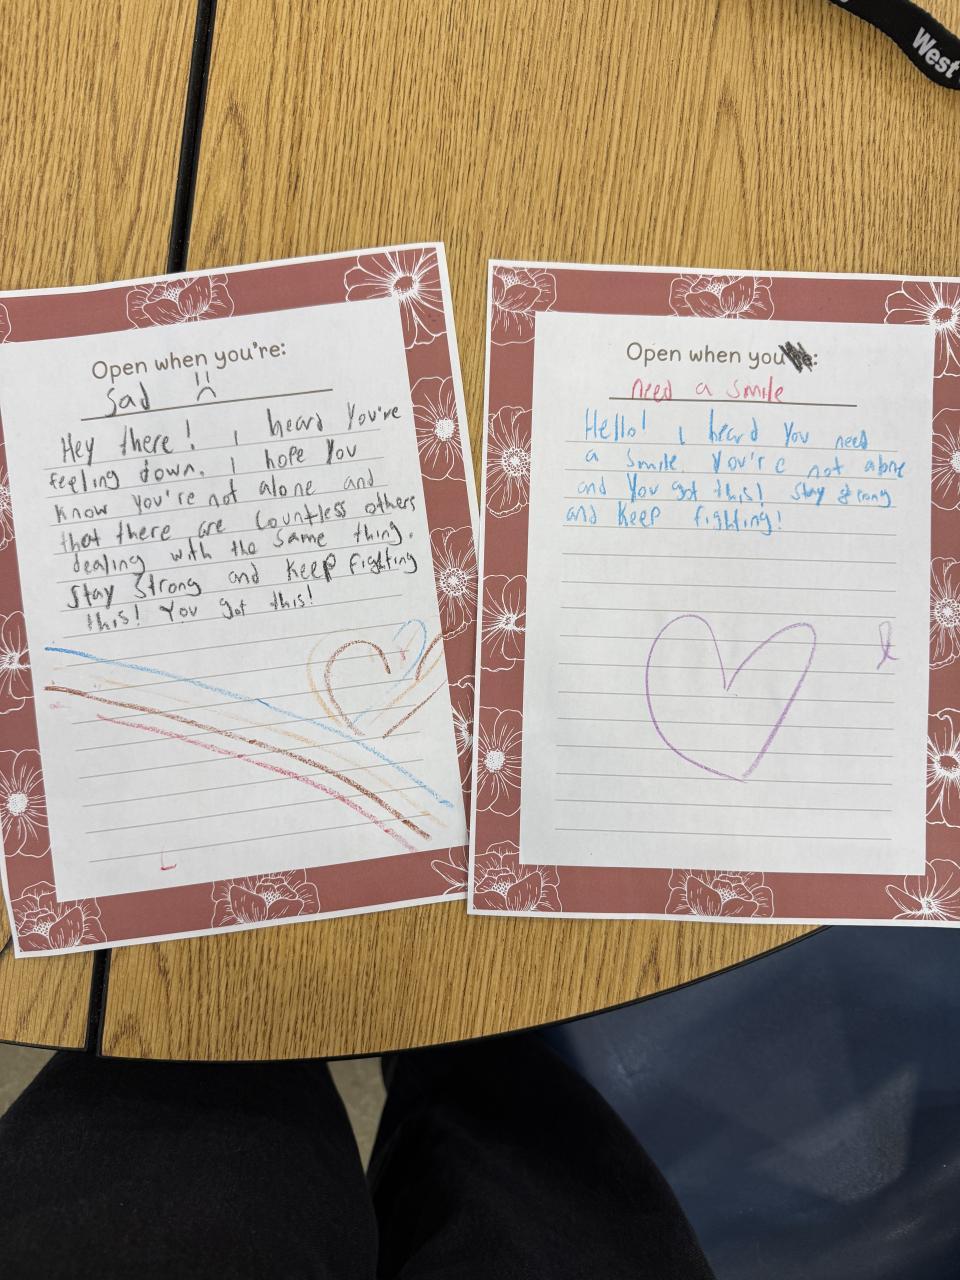 West
Open when you're:
Sad
Hey there! I heard You're
feeling down. I hope You
know You're not alone and
that there are Countless others
dealing with the same thing.
Stay Strong and keep Fighting
this! You got this!
Open when you:
Need a Smile
Hello! I heard You need
a Smile. You're not alone
and You got this! Stay strong
and Keep fighting!